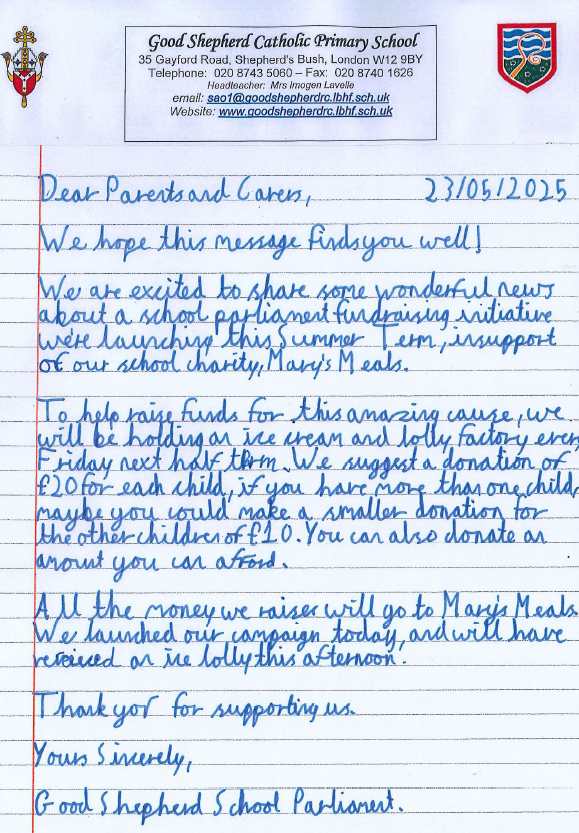 Good Shepherd Catholic Primary School
35 Gayford Road, Shepherd's Bush, London W12 9BY
Telephone: 020 8743 5060 – Fax: 020 8740 1626
Headteacher: Mrs Imogen Lavelle
email: sao1@goodshepherdrc.lbhf.sch.uk
Website: www.goodshepherdrc.lbhf.sch.uk
Dear Parents and Carers, 23/05/2025
We hope this message finds you well!
We are excited to share some wonderful news
about a school parliament fundraising initiative
we're launching this Summer Term, in support
of our school charity, Mary's Meals.
To help raise funds for this amazing cause, we
will be holding an ice cream and lolly factory ever
Friday next half term. We suggest a donation of
£20 for each child, if you have more than one child
maybe you could make a smaller donation for
the other children of £10. You can also donate an
amount you can afford.
All the money we raises will go to Mary's Meals.
We launched our campaign today, and will have
received an ice lolly this afternoon.
Thank you for supporting us.
Yours Sincerely,
Good Shepherd School Parliament.